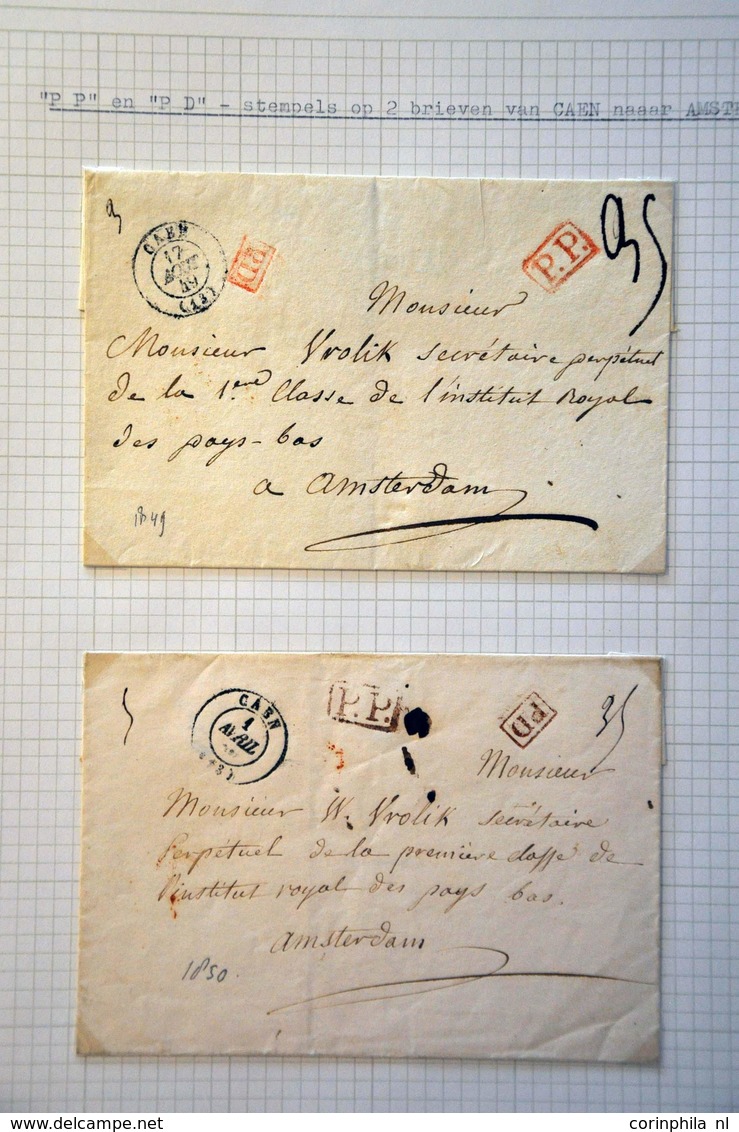 "P P" en "P D" - stempels op 2 brieven van CAEN naaar AMST
CAEN
17
AOUT
49
(13)
PD
P.P.
Monsieur
Monsieur Vrolik secrétaire perpétuel
de la 1ere Classe de l'institut Royal
des pays-bas
a Amsterdam
1849
CAEN
1
AVRIL
P.P.
PD
Monsieur
Monsieur W. Vrolik secrétaire
Perpétuel de la première classe de
l'institut royal des pays bas.
Amsterdam
1850.
corinphila nl